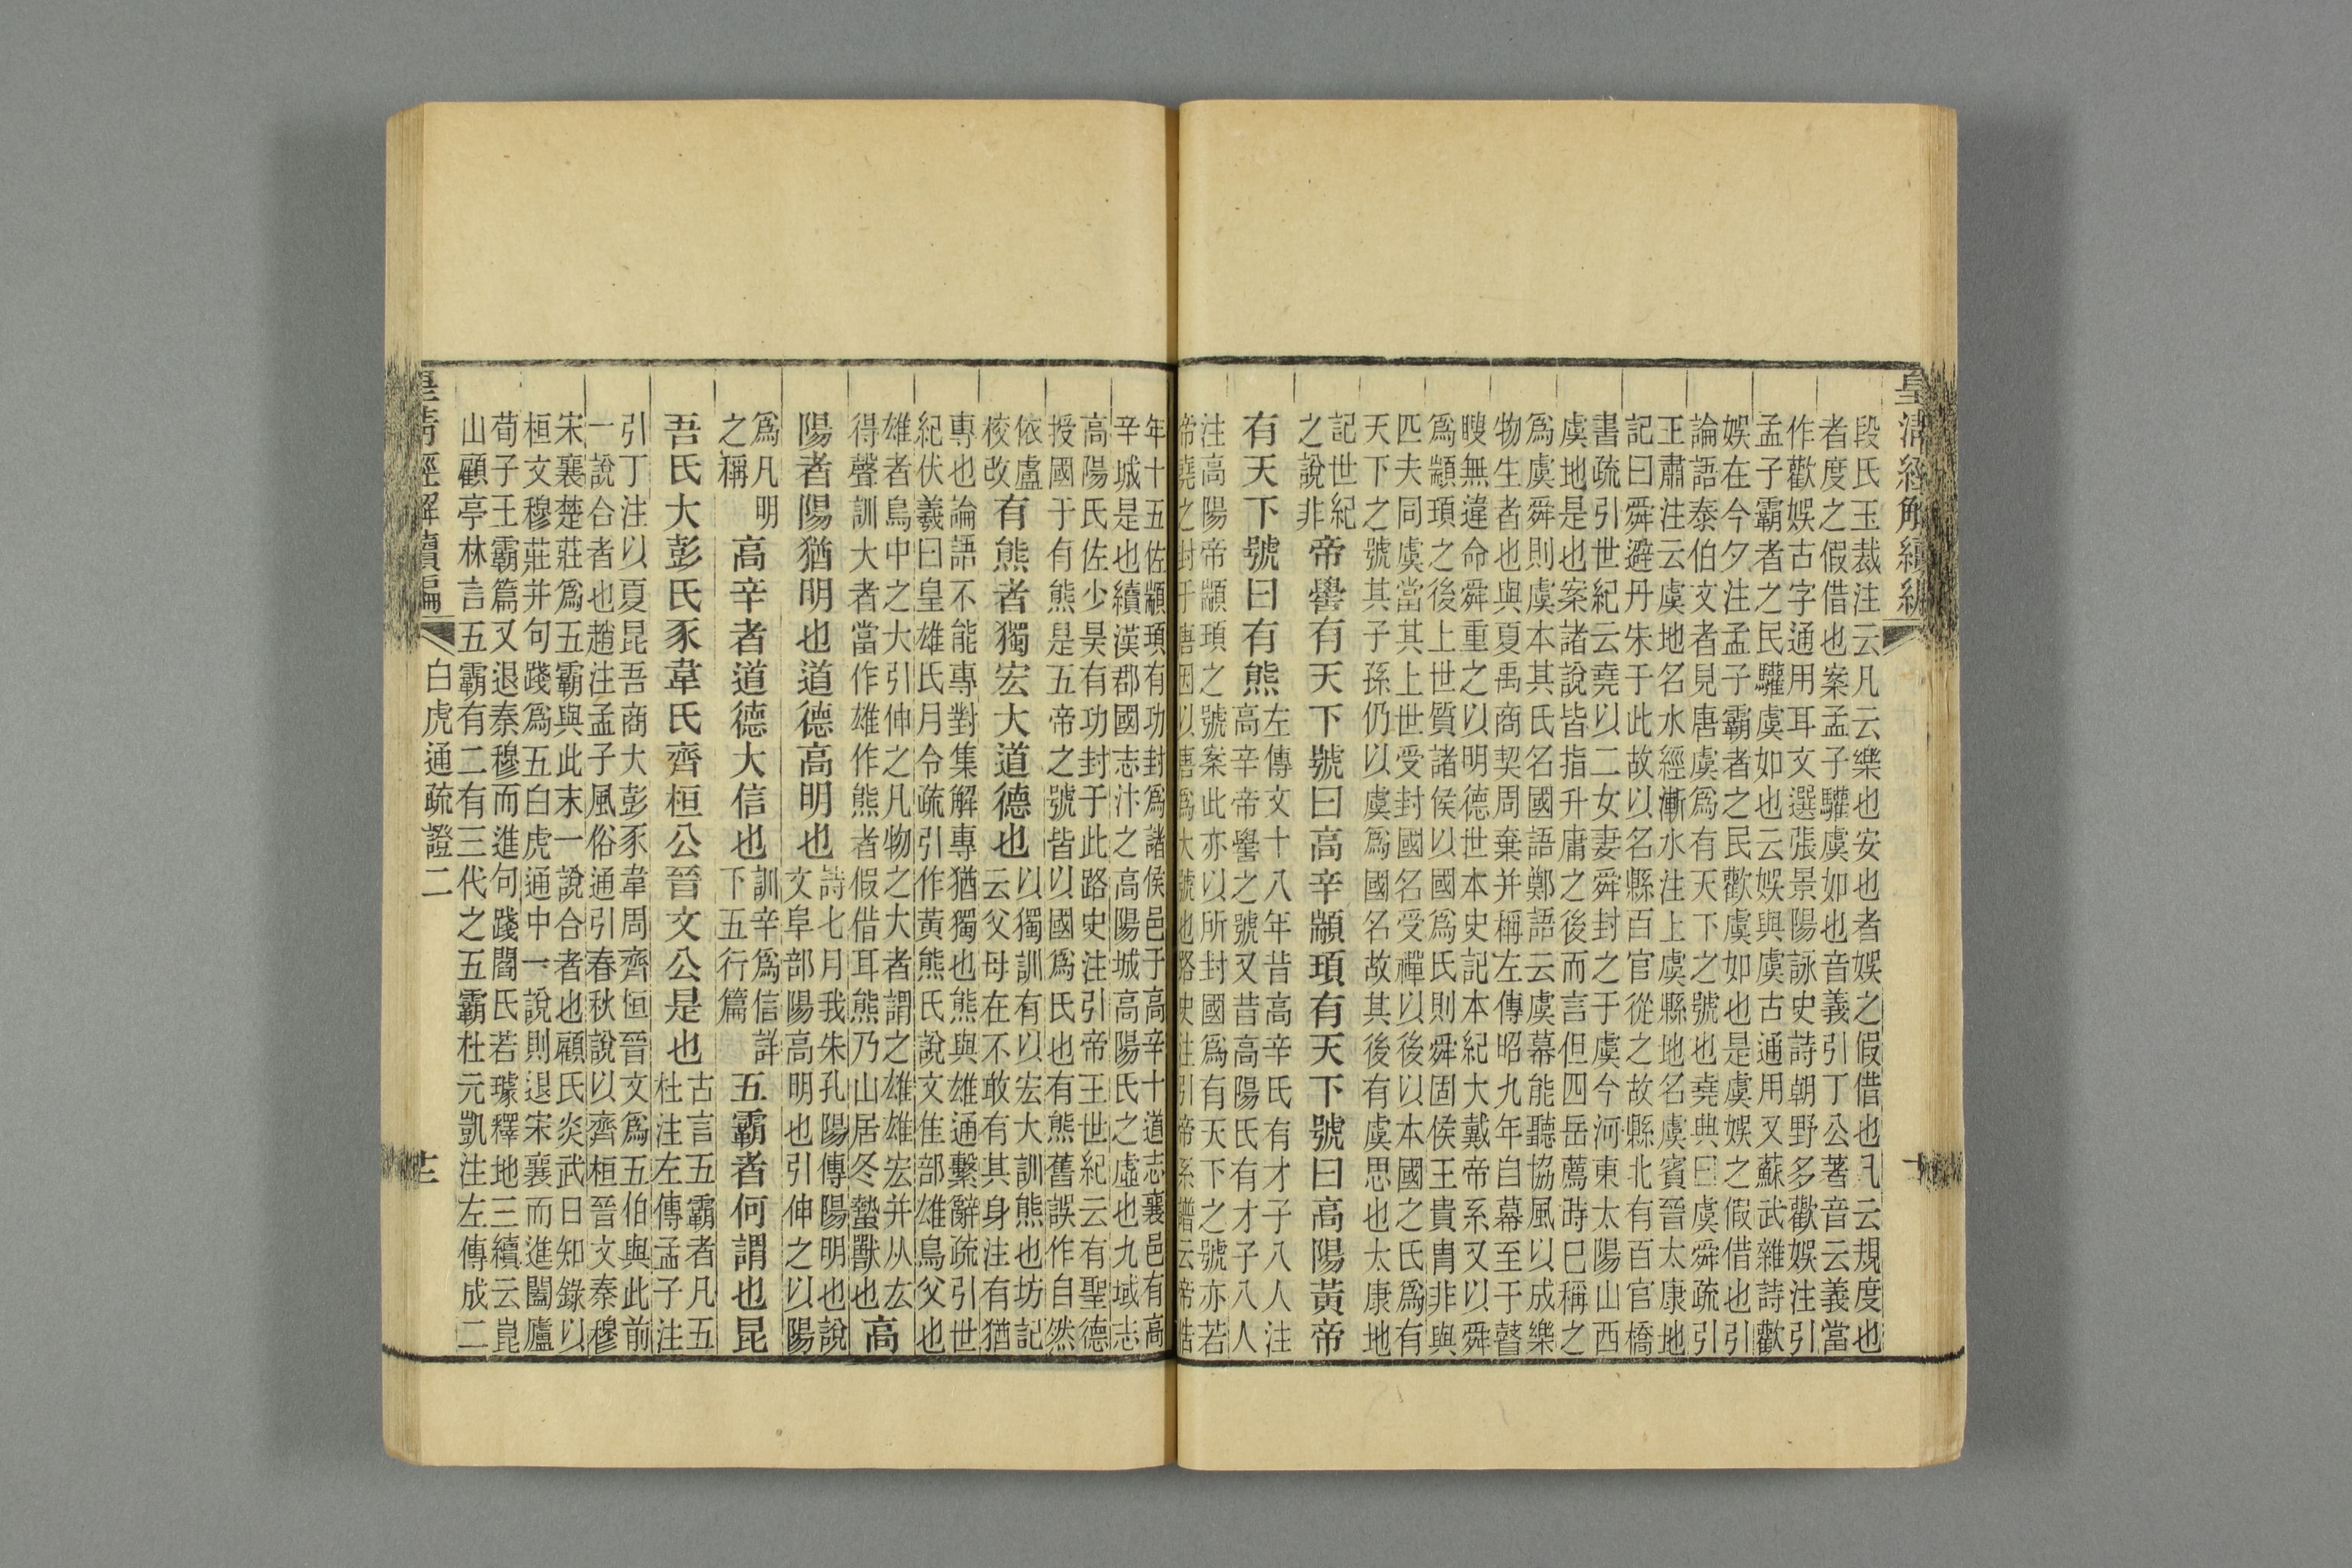 皇清經解續編 十
段氏玉裁注云凡云樂也安也者娛之假借也凡云規度也
者度之假借也案孟子驩虞如也音義引丁公著音云義當
作歡娛古字通用耳文選張景陽詠史詩朝野多歡娛注引
孟子霸者之民驩虞如也云娛與虞古通用又蘇武雜詩歡
娛在今夕注孟子霸者之民歡虞如也是虞娛之假借也引
論語泰伯文者見唐虞爲有天下之號也堯典曰虞舜疏引
王肅注云虞地名水經漸水注上虞縣地名虞賓晉太康地
記曰舜避丹朱于此故以名縣百官從之故縣北有百官橋
書疏引世紀云堯以二女妻舜封之于虞今河東太陽山西
虞地是也案諸說皆指升庸之後而言但四岳薦時巳稱之
爲虞舜則虞本其氏名國語鄭語云虞幕能聽協風以成樂
物生者也與夏禹商契周棄并稱左傳昭九年自幕至于瞽
瞍無違命舜重之以明德世本史記本紀大戴帝系又以舜
爲顓頊之後上世質諸侯以國爲氏則舜固侯王貴冑非與
匹夫同虞當其上世受封國名受禪以後以本國之氏爲有
天下之號其子孫仍以虞爲國名故其後有虞思也太康地
記世紀
之說非
帝嚳有天下號曰高辛顓頊有天下號曰高陽黃帝
有天下號曰有熊
左傳文十八年昔高辛氏有才子八人注
高辛帝嚳之號又昔高陽氏有才子八人
注高陽帝顓頊之號案此亦以所封國爲有天下之號亦若
帝堯之封于唐因以唐爲大號也路史注引帝系譜云帝俈
年十五佐顓頊有功封爲諸侯邑于高辛十道志襄邑有高
辛城是也續漢郡國志汴之高陽城高陽氏之虛也九域志
高陽氏佐少昊有功封于此路史注引帝王世紀云有聖德
授國于有熊是五帝之號皆以國爲氏也有熊舊誤作自然
依盧
校改
有熊者獨宏大道德也
以獨訓有以宏大訓熊也坊記
云父母在不敢有其身注有猶
專也論語不能專對集解專猶獨也熊與雄通繫辭疏引世
紀伏羲曰皇雄氏月令疏引作黃熊氏說文隹部雄鳥父也
雄者鳥中之大引伸之凡物之大者謂之雄雄宏并从厷
得聲訓大者當作雄作熊者假借耳熊乃山居冬蟄獸也
高
陽者陽猶明也道德高明也
詩七月我朱孔陽傳陽明也說
文阜部陽高明也引伸之以陽
爲凡明
之稱
高辛者道德大信也
訓辛爲信詳
下五行篇
五霸者何謂也昆
吾氏大彭氏豕韋氏齊桓公晉文公是也
古言五霸者凡五
杜注左傳孟子注
引丁注以夏昆吾商大彭豕韋周齊恒晉文爲五伯與此前
一說合者也趙注孟子風俗通引春秋說以齊桓晉文秦穆
宋襄楚莊爲五霸與此末一說合者也顧氏炎武日知錄以
桓文穆莊并句踐爲五白虎通中一說則退宋襄而進闔廬
荀子王霸篇又退秦穆而進句踐閻氏若璩釋地三續云崑
山顧亭林言五霸有二有三代之五霸杜元凱注左傳成二
皇清經解續編 白虎通疏證二